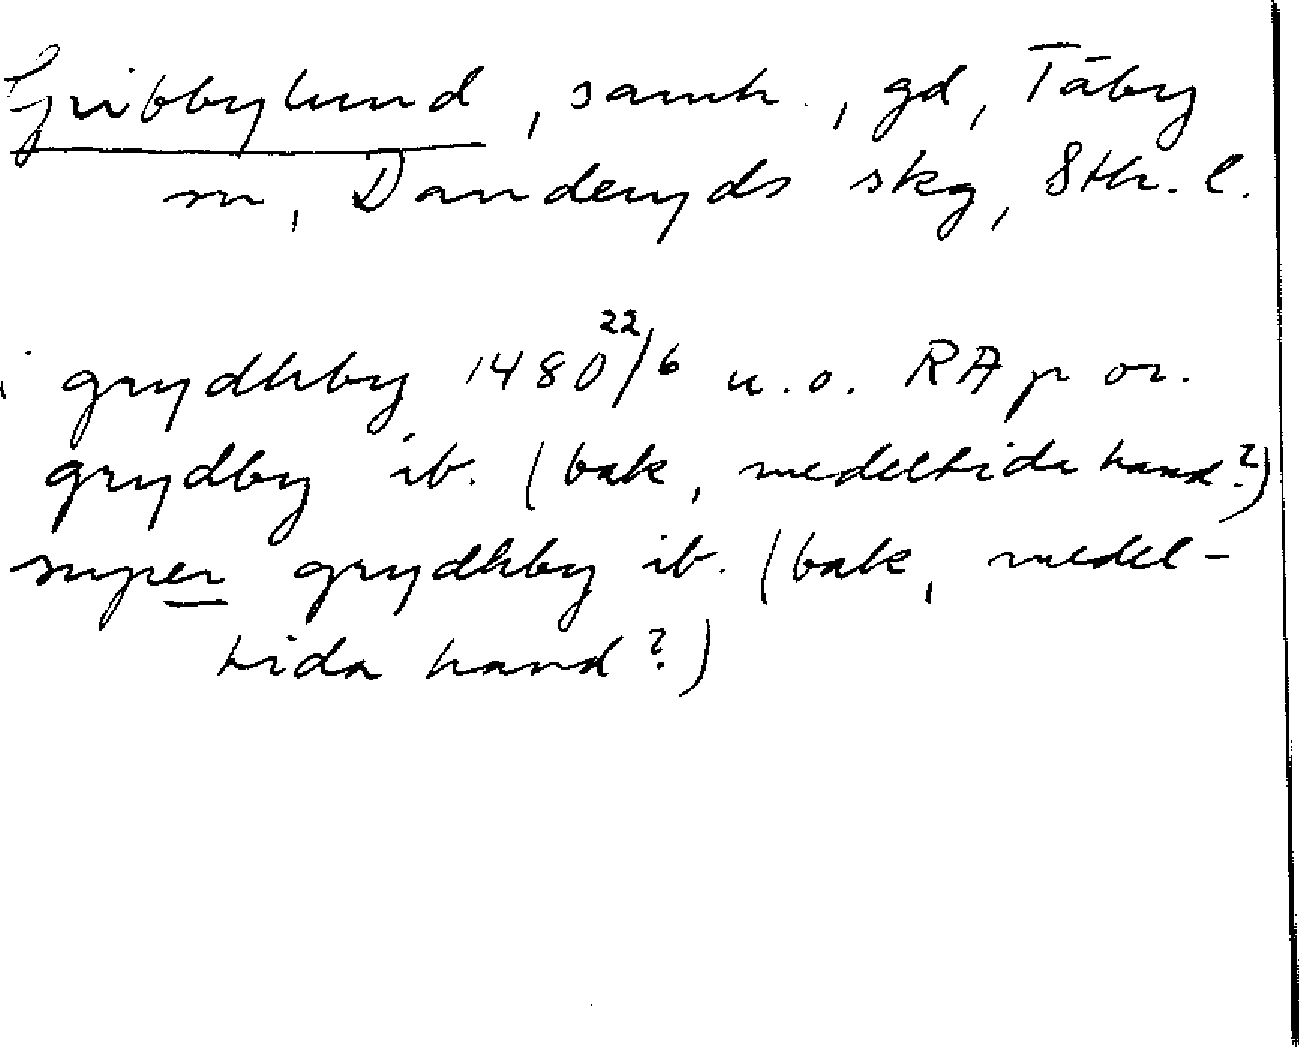 Gribbylund, samh., gd, Täby
sn, Danderyds skg, Sth. l.
i grydhby 1480 22/6 u.o. RA p or.
grydby ib. (bak, medeltida hand?)
super grydhby ib. (bak, medel-
tida hand?)